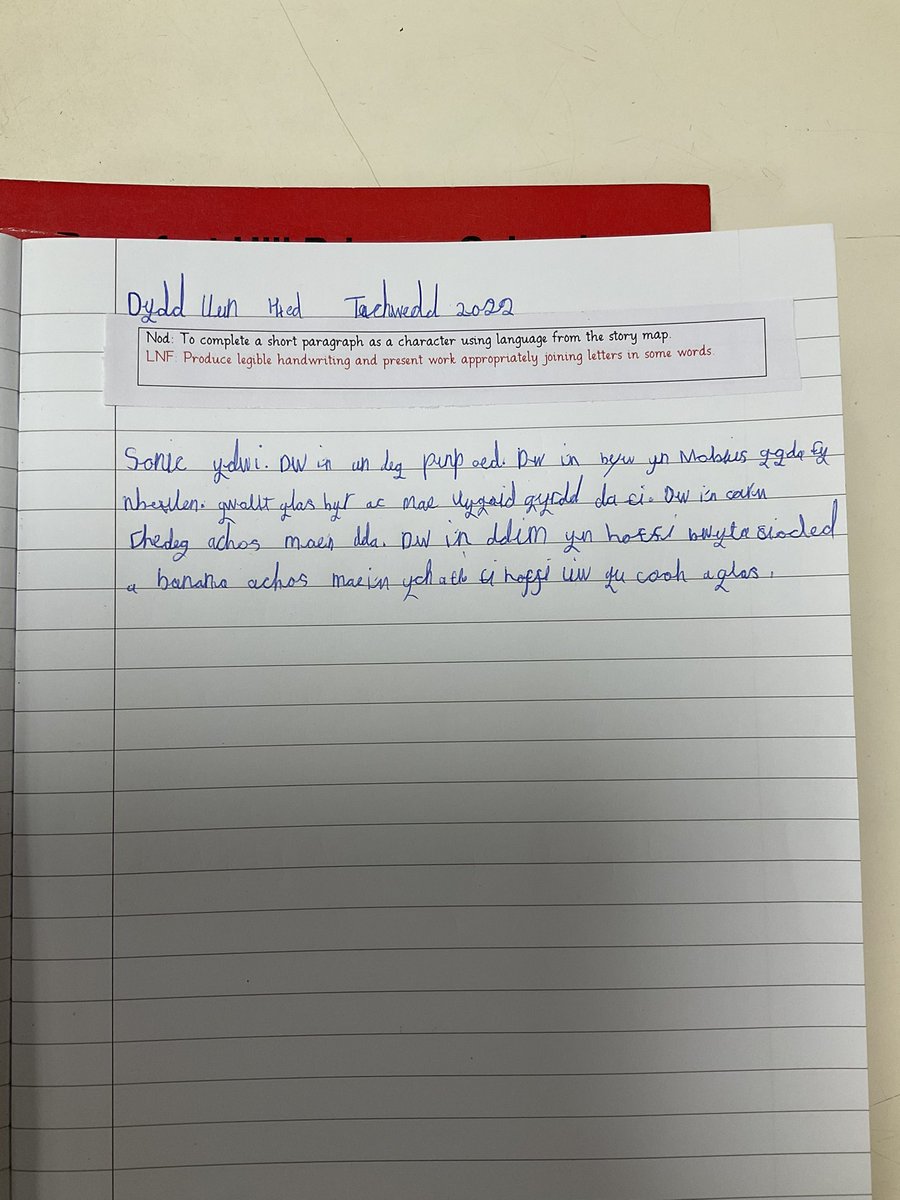 Dydd llun Tachwedd 2022
Nod: To complete a short paragraph as a character using language from the story map.
LNF: Produce legible handwriting and present work appropriately joining letters in some words.
Sonic ydwi. DW in un deg pump oed. Dw in byw yn Mobius gyda fy
gwallt glas byr ac mae llygaid gyrdd da fi. Dw in
rhedeg achos maen dda. DW in ddim yn hoffi bwyta sioded
a banana achos maein ych a fi hoffi liw yu coch a glas.